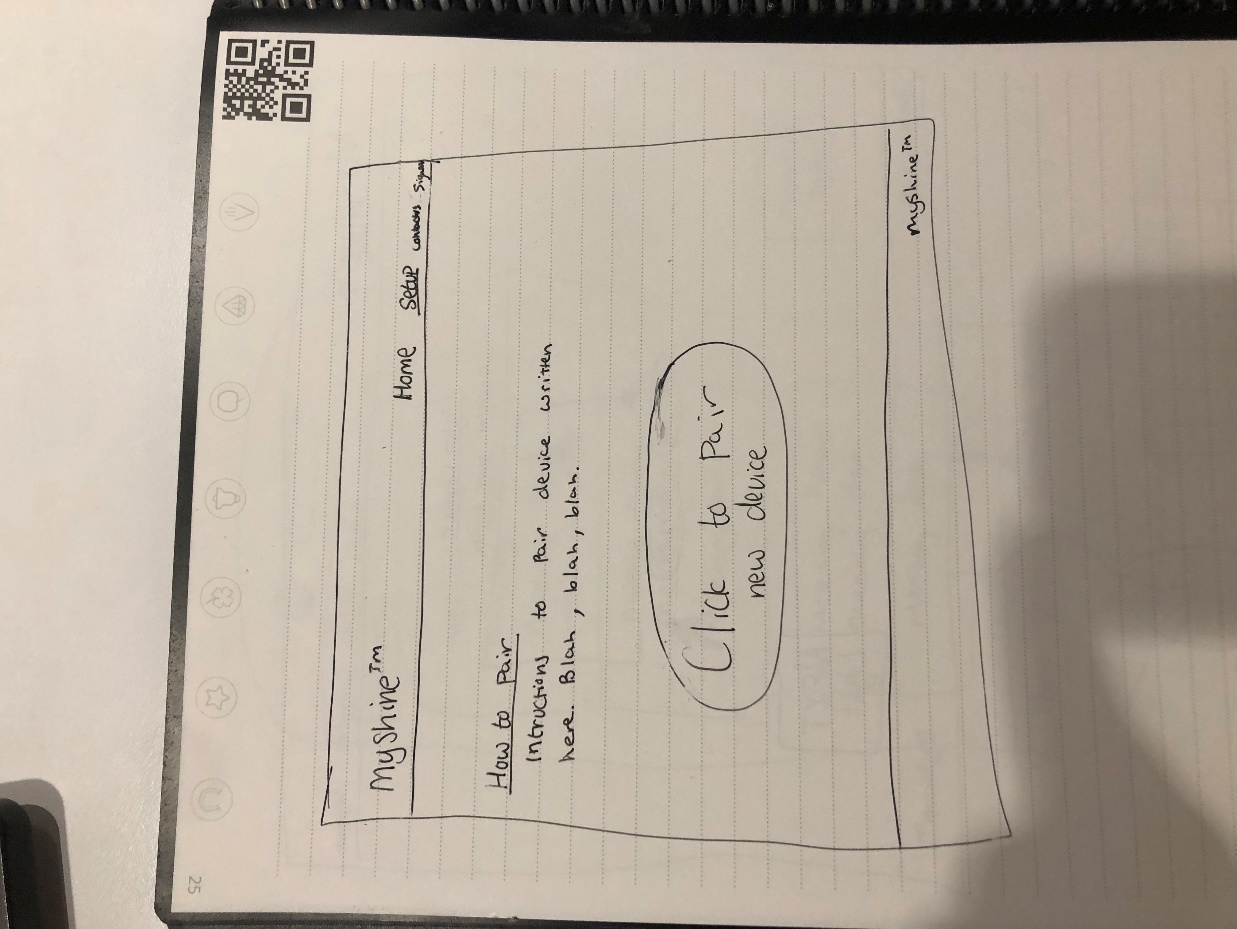 Myshine™
Home Setup contacts
How to Pair
Intructions to Pair device written
here. Blah, blah, blah.
Click to Pair
new device
myshine™
25